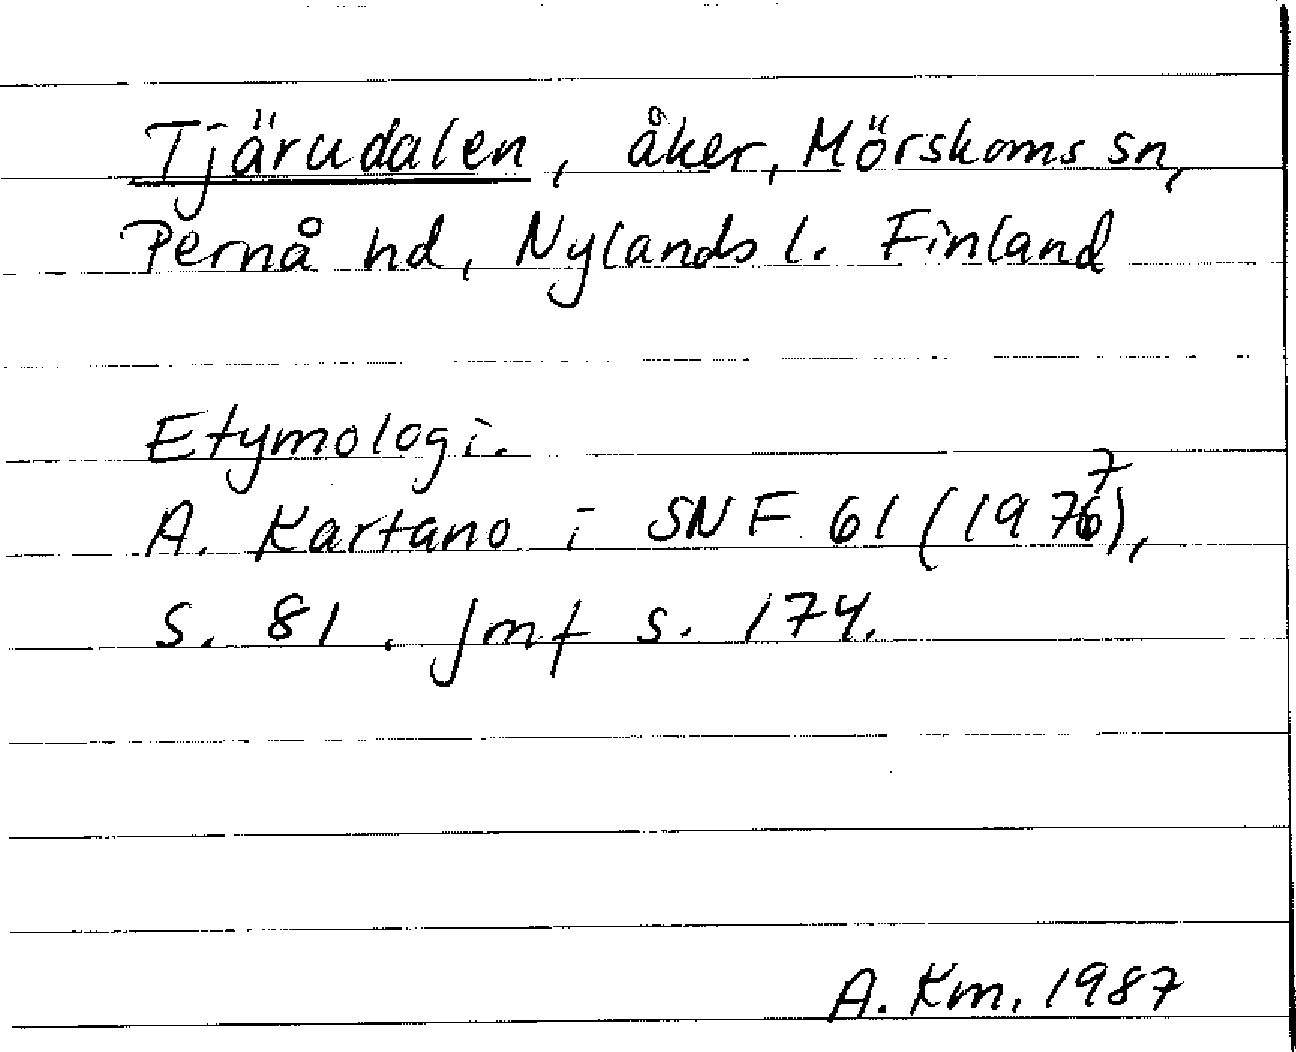 Tjärudalen, åker, Mörskoms sn,
Pernå hd, Nylands l. Finland
Etymologi.
A. Kartano i SNF 61 (1977),
s. 81. Jmf s. 174.
A. Km. 1987